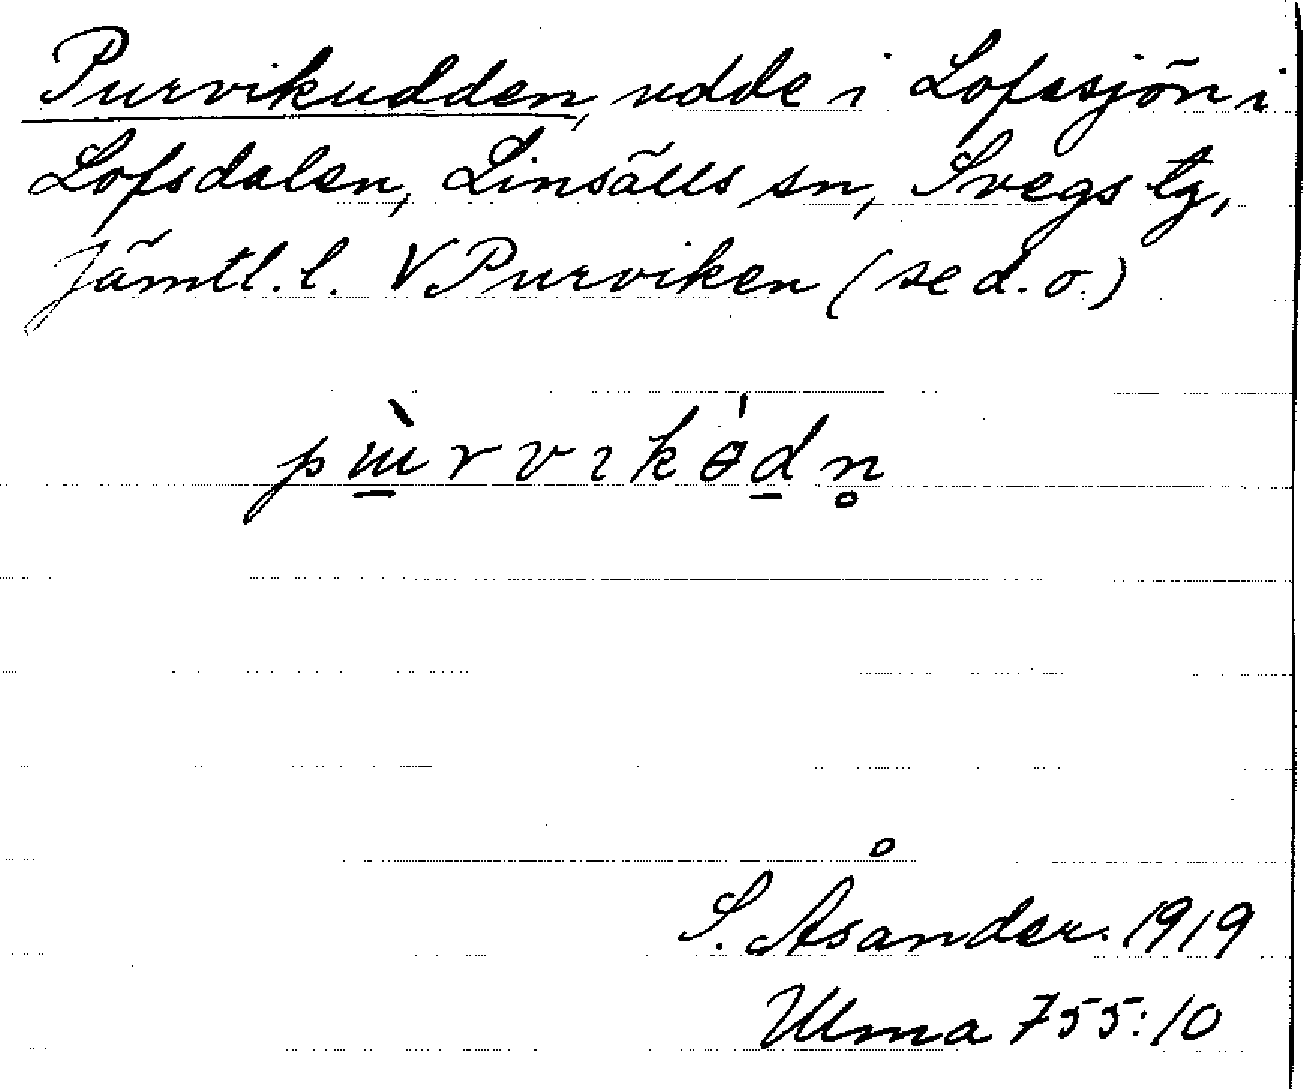 Purvikudden, udde i Lofssjön i
Lofsdalen, Linsälls sn, Svegs tg,
Jämtl. l. V Purviken (se d. o.)
S. Åsander. 1919
Ulma 755:10